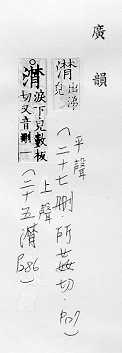 廣韻
潸 出涕皃
(平聲 二十七刪·所姦切·P127)
潸 淚下皃數板切又音刪一
(上聲 二十五潸 P286)